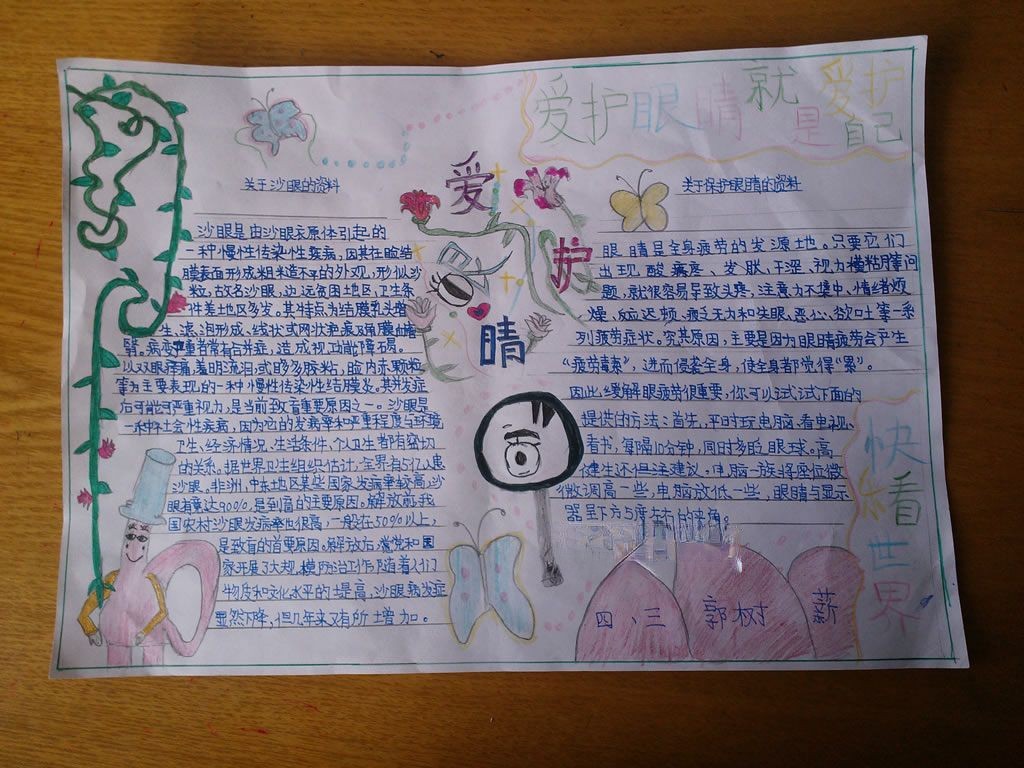 爱护眼睛就是爱护自己
关于沙眼的资料
沙眼是由沙眼衣原体引起的
一种慢性传染性疾病，因其在睑结
膜表面形成粗糙不平的外观，形似沙
粒，故名沙眼，边远贫困地区，卫生条
件差地区多发。其特点为结膜乳头增
生、滤泡形成、线状或网状
病变严重者常有合并症，造成视功能障碍。
以双眼疼痛，羞明流泪，或眵多胶粘，睑内赤颗粒
等为主要表现的一种慢性传染性结膜炎。其并发症
后可能可严重视力，是当前致盲重要原因之一。沙眼是
一种社会性疾病，因为它的发病率和严重程度与环境
卫生、经济情况、生活条件、个人卫生都有密切
的关系。据世界卫生组织估计，全界有5亿人患
沙眼。非洲、中东地区某些国家发病率较高，沙
眼有等达90%，是到盲的主要原因。解放前，我
国农村沙眼发病率也很高，一般在50%以上，
是致盲的首要原因。解放后，党和国
家开展了大规模防治工作，随着人们
物质和文化水平的提高，沙眼
显然下降，但几年来又有所增加。
爱
护
眼
睛
关于保护眼睛的资料
眼睛是全身疲劳的发源地。只要它们
出现酸痛、发胀、干涩、视力模糊等问
题，就很容易导致头疼，注意力不集中、情绪烦
燥、反应迟顿、疲乏无力和失眠、恶心、欲呕吐等一系
列疲劳症状。究其原因，主要是因为眼睛疲劳会产生
“疲劳毒素”，进而侵袭全身，使全身都觉得“累”。
因此，缓解眼疲劳很重要，你可以试试下面的
提供的方法：首先，平时玩电脑、看电视、
看书，每隔10分钟，同时多眨眼球。高
健生还但泽建议，电脑一族将座位微
微调高一些，电脑放低一些，眼睛与显示
器呈下方5度
快乐看世界
四、三 郭树薪